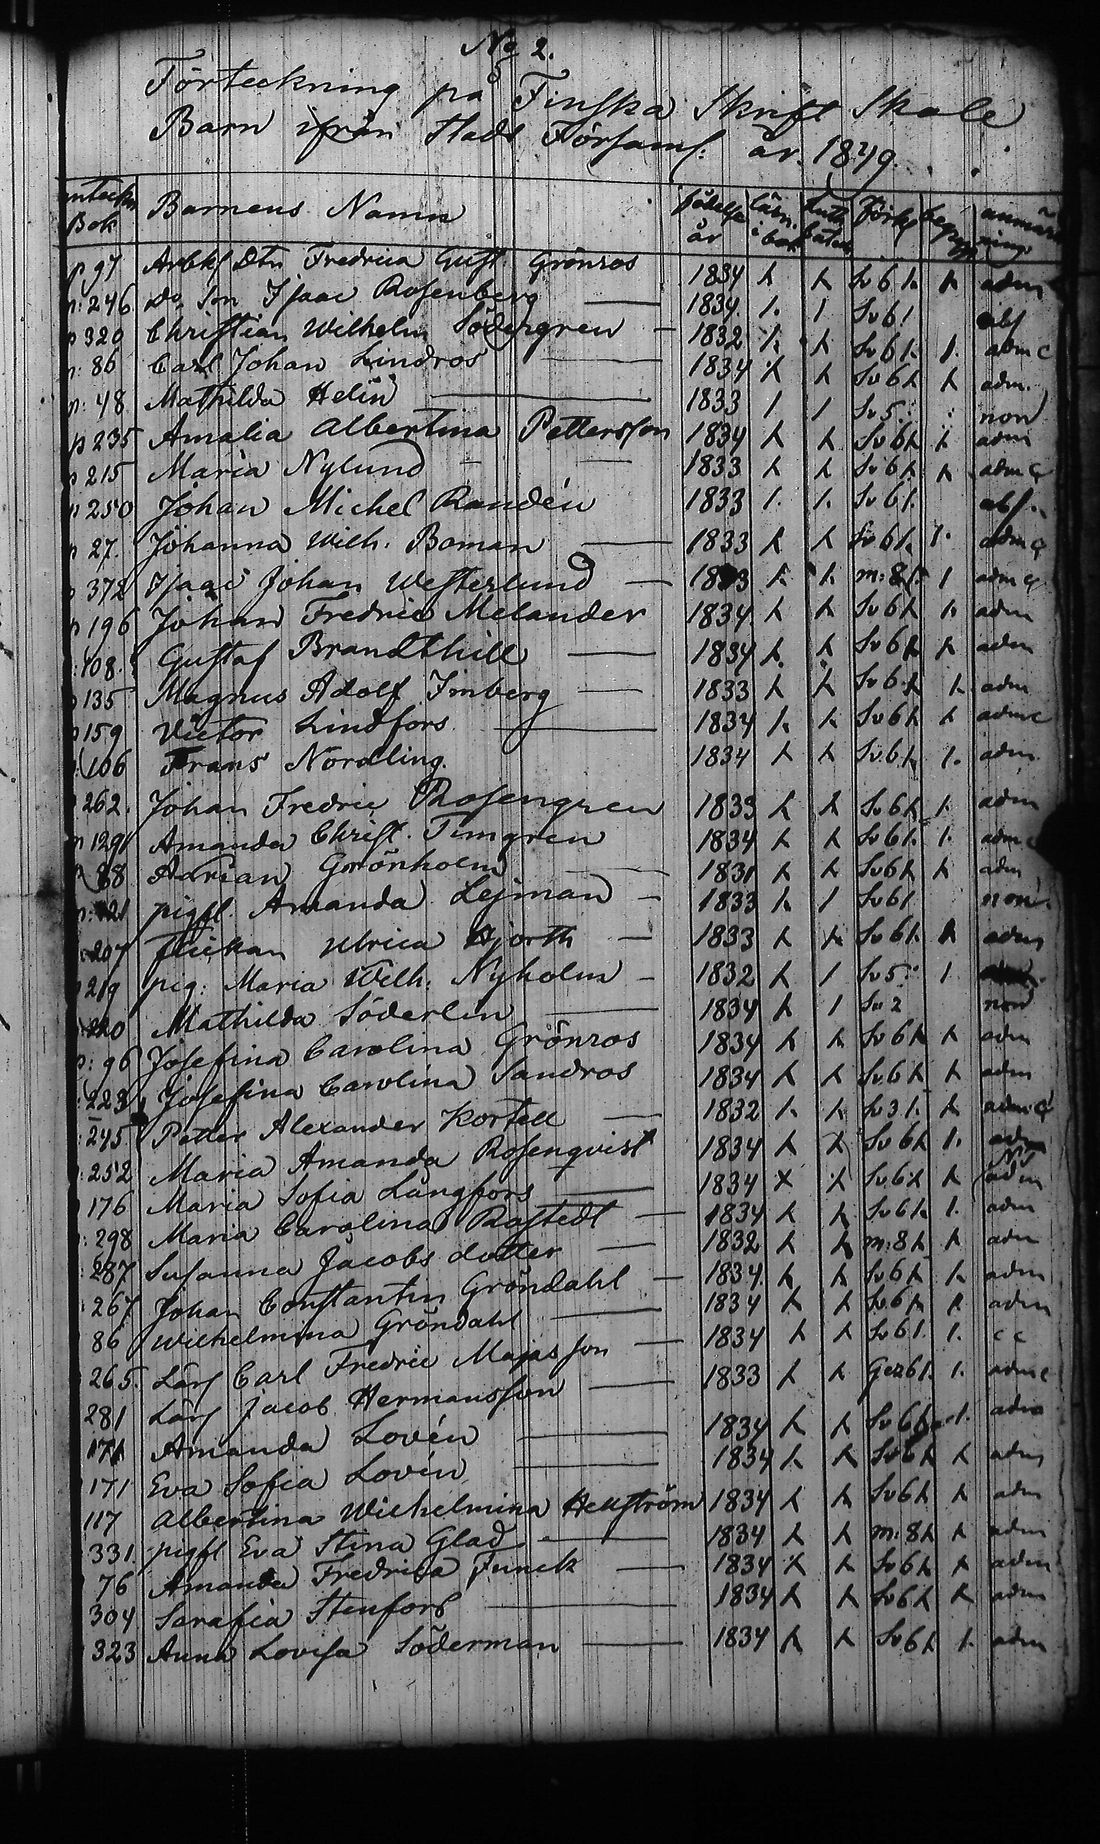 No 2.
Förteckning på Finska Skrift Skole
Barn ifrån Stads Församl: år 1849.
Bok Barnens Namn födelse år läsn. i bok Förkl begrep
p 97 Arbkl Dtr Fredrica Gust. Grönros 1834 adm
p: 246 do Son Isaac Rosenberg 1834 Sv 6 abs
p 320 Christian Wilhelm Södergren 1832 Sv 6 adm c
p: 86 Carl Johan Lindros 1834 Sv 6 adm.
p: 48 Mathilda Helin 1833 Sv 5 non
p 235 Amalia Albertina Pettersson 1834 Sv 6 adm
p 215 Maria Nylund 1833 Sv 6 adm c
p 250 Johan Michel Randén 1833 Sv 6 abs.
p 27. Johanna Wilh. Boman 1833 Sv 6 adm c
p 372 Isaac Johan Westerlund m: 8 adm c
p 196 Johan Fredric Melander 1834 Sv 6 adm
108. Gustaf Brandthill 1834 Sv 6 adm
p 135 Magnus Adolf Imberg 1833 Sv 6 adm
p 159 Victor Lindfors 1834 Sv 6 adm c
106 Frans Nordling 1834 Sv 6 adm
262. Johan Fredric Rosengren 1833 Sv 6 adm
p 129 Amanda Christ. Timgren 1834 Sv 6 adm c
88 Adrian Grönholm 1831 Sv 6 adm
21 pigfl. Amanda Lejman 1833 Sv 6 non
207 flickan Ulrica Hjorth 1833 Sv 6 adm
p 219 pig: Maria Wilh. Nyholm 1832 Sv 5
220 Mathilda Söderlin 1834 Sv 2 non
p: 96 Josefina Carolina Grönros 1834 Sv 6 adm
223 Josefina Carolina Sandros 1834 Sv 6 adm
245 Petter Alexander Kortell 1832 Sv 3 adm c
252 Maria Amanda Rosenqvist 1834 Sv 6 adm
176 Maria Sofia Långfors 1834 Sv 6 adm
298 Maria Carolina Rastedt 1834 Sv 6 adm
287 Susanna Jacobs dotter 1832 m: 8 adm
267 Johan Constantin Gröndahl 1834 Sv 6 adm
86 Wilhelmina Gröndahl 1834 Sv 6 adm
265. Lärl Carl Fredric Majasson 1834 Sv 6 c c
281 Lärl Jacob Hermansson 1833 6 adm c
171 Amanda Lovén 1834 Sv 6 adm
171 Eva Sofia Lovén 1834 Sv 6 adm
117 Albertina Wilhelmina Hellström 1834 Sv 6 adm
331. pigfl Eva Stina Glad 1834 m: 8 adm
76 Amanda Fredrica Funck 1834 Sv 6 adm
304 Serafia Stenfors 1834 Sv 6 adm
323 Anna Lovisa Söderman 1834 Sv 6 adm